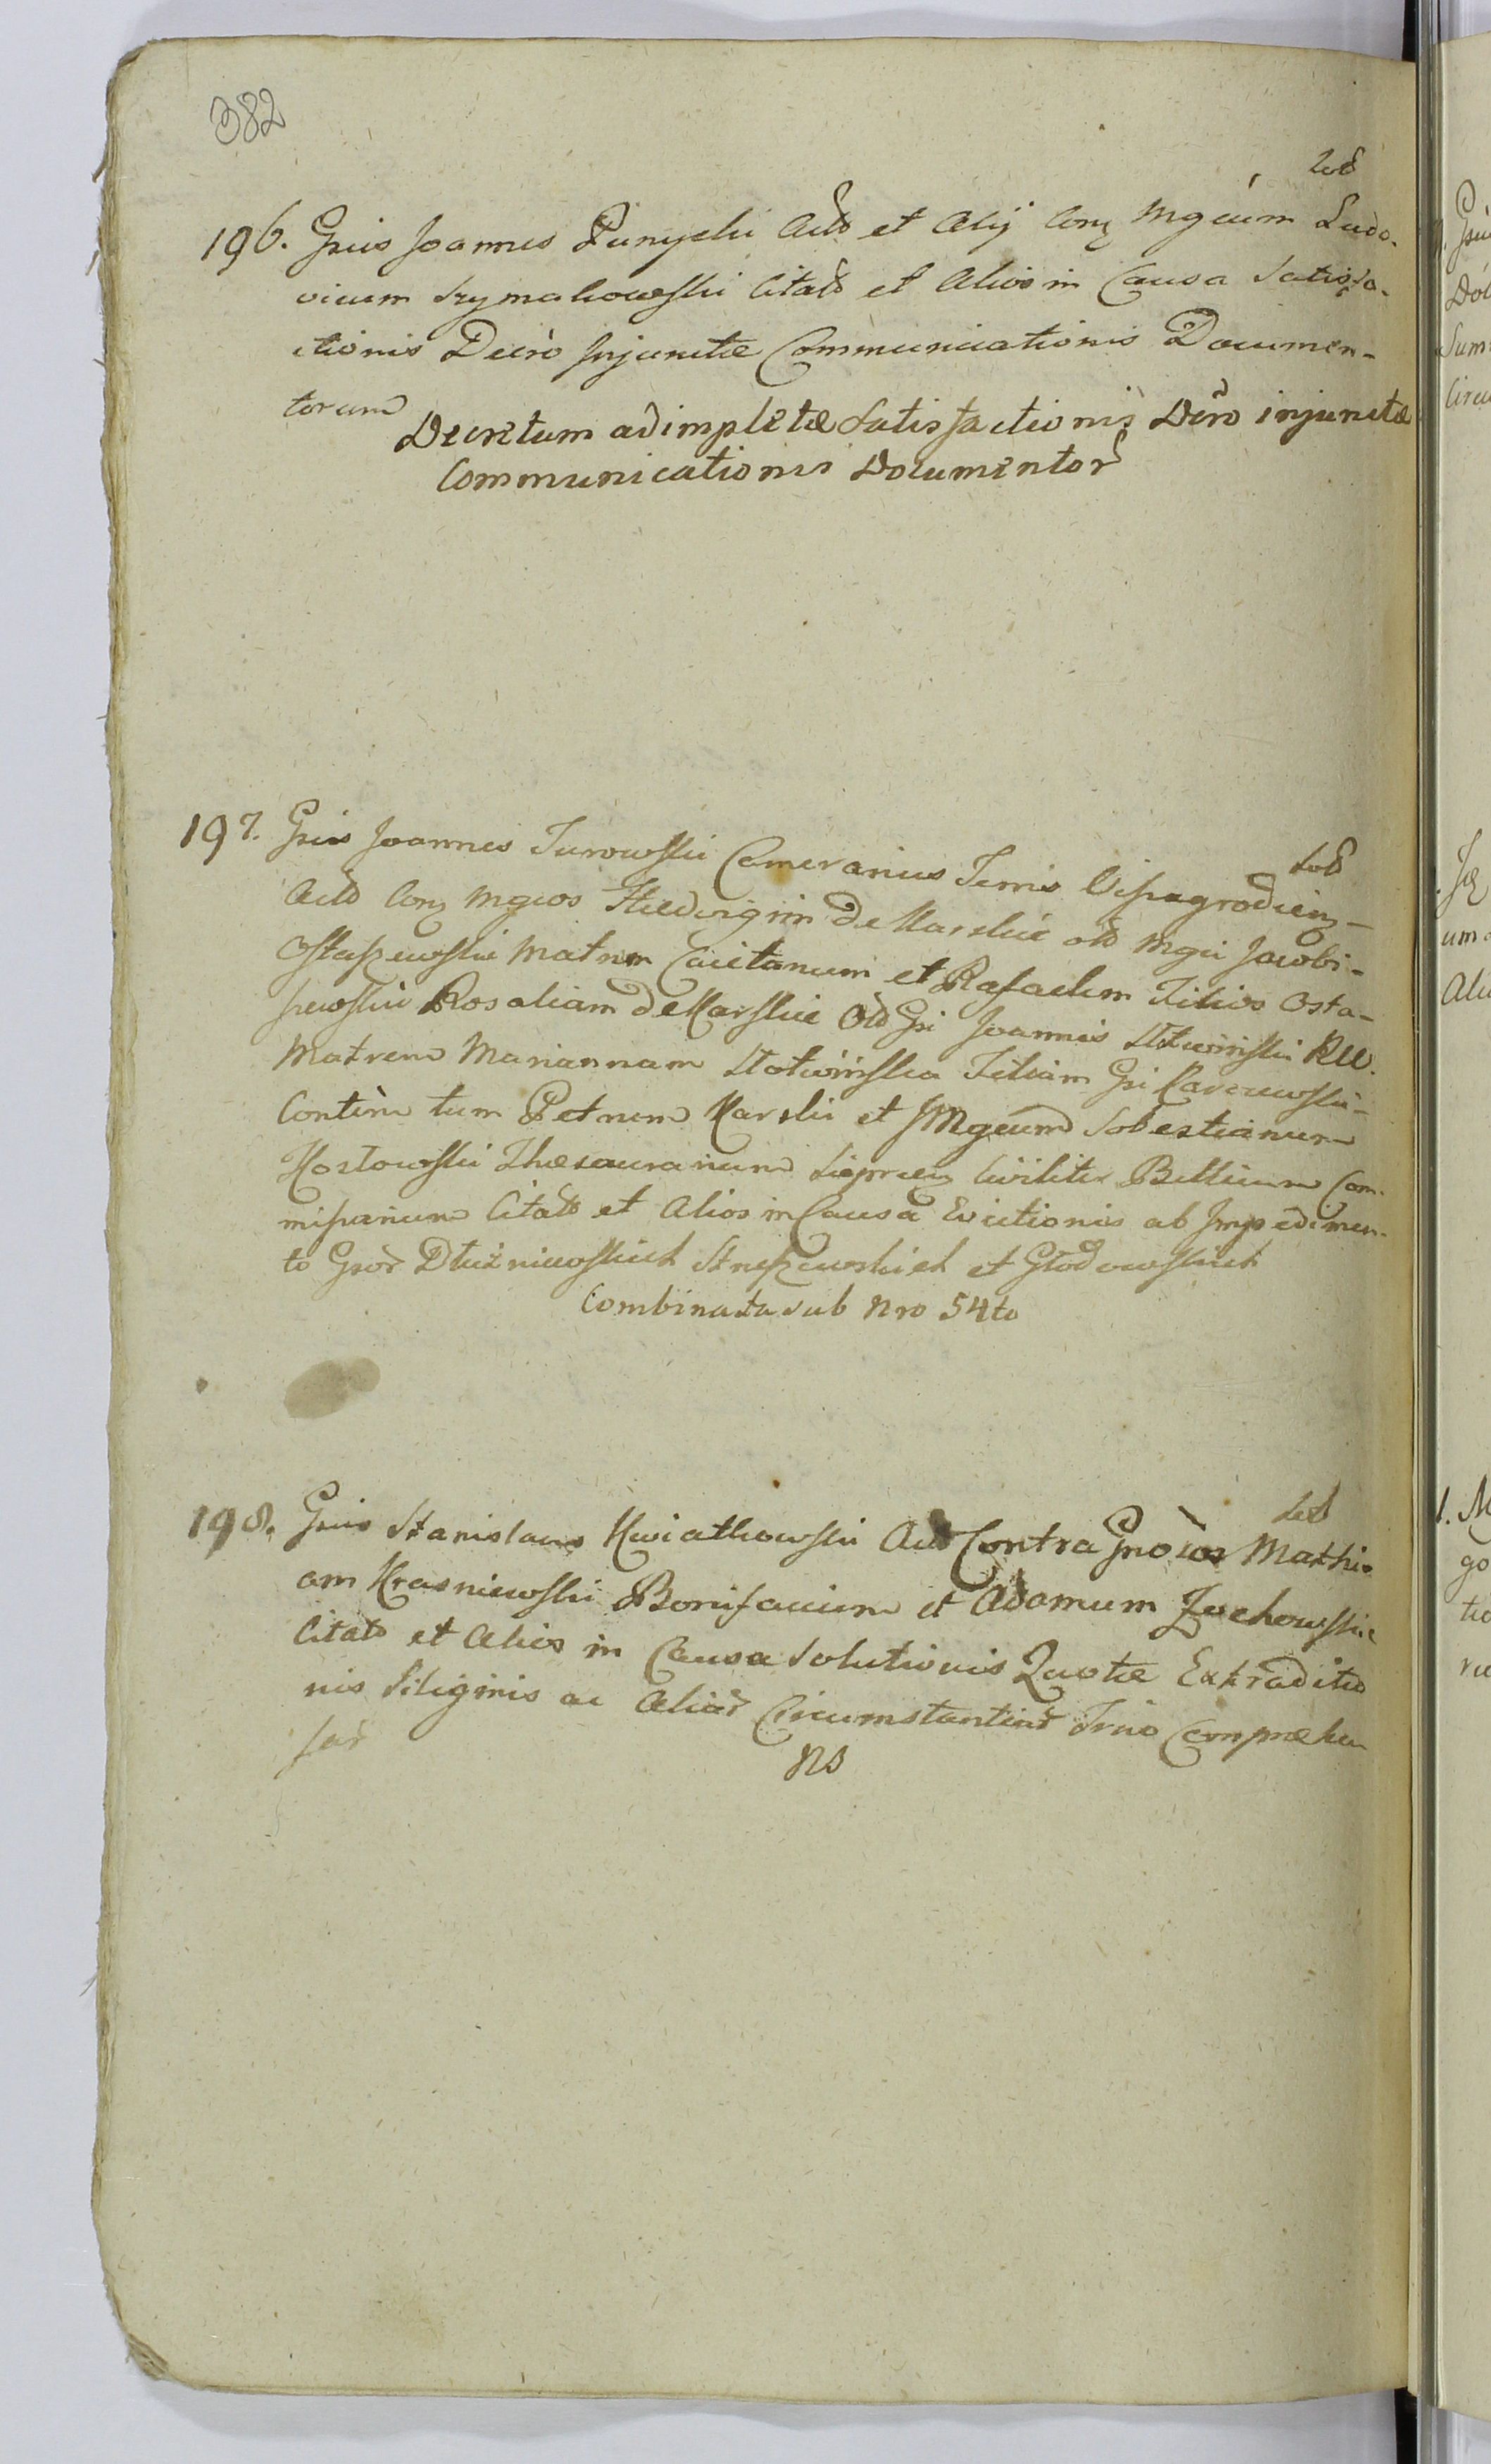 382
196. Gsus Joannes Punycki Actd et Alij Conz Mgcum Ludo-
vicum Szymakowski Citatd et Alios in Causa Satisfa-
ctionis Decro Injunctæ Communicationis Documen-
torum
Decretum adimpletæ Satisfactionis Dcro injunctæ
Communicationis Documentor
197. Gsus Joannes Turowski Camerarius Terris Vissogrodienz-
Actd Conz Mgcos Hedvigim de Karskie old Mgci Jacobi-
Ostaszewskie Matrem Caietanum et Rafaelem Filios Osta-
szewskie Rosaliam de Karskie Old Gsi Joannis Słotwinski Rel.
Matrem Mariannam Słotwińska Filiam Gsi
Contin tum Petrum Karski et JMgcum Sebestianum
Kostowski Thesaurarium Civilite Bellicum Com-
missarium Citatd et Alios in Causa Evictionis ab Impedimen-
to Gsor Dłużniewskich Strzeszewskich et Głodowskich
Combinata sub Nro 54to
198. Gsus Stanislaus Kwiatkowski Actd Contra Gnosos Mathi-
am Krasniewski Bonifacium et Adamum Zochowskie
Citatd et Alios in Causa Solutionis Quotæ Extraditio
nis Siliginis ac Aliar Circumstantiar Trnio Compræhen
sar
NS